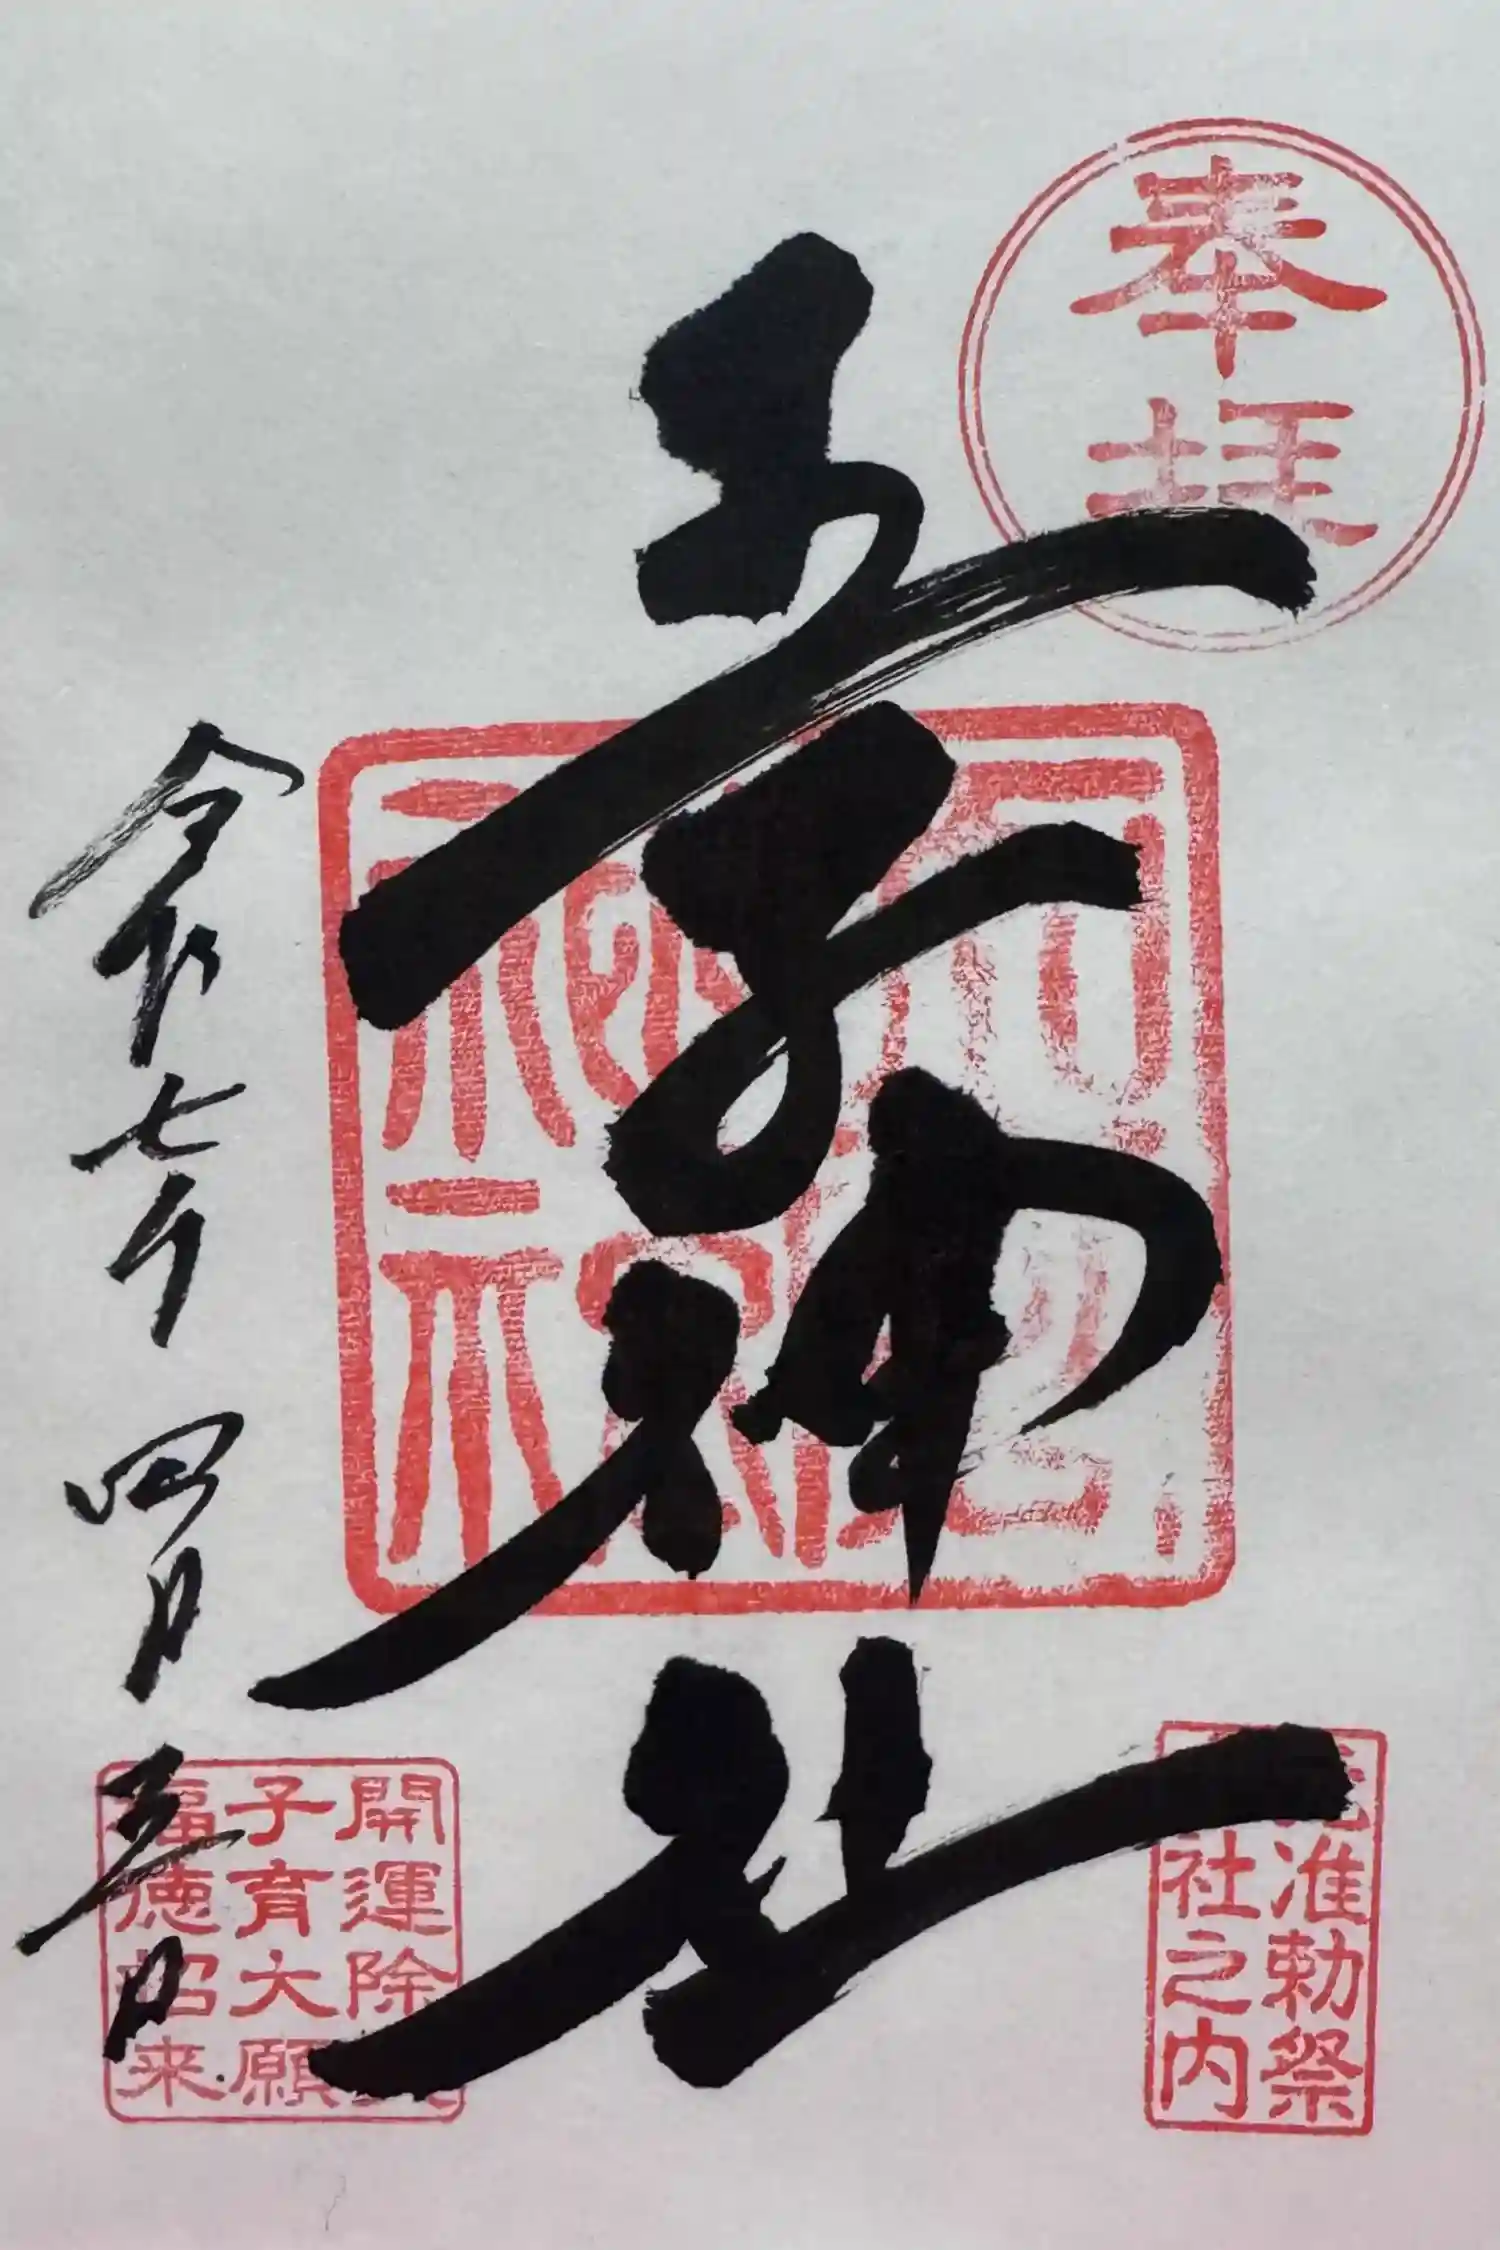 奉拝
王子神社
准勅祭
社之内
令和七年 四月五日
開運除
子育大願
福徳招来